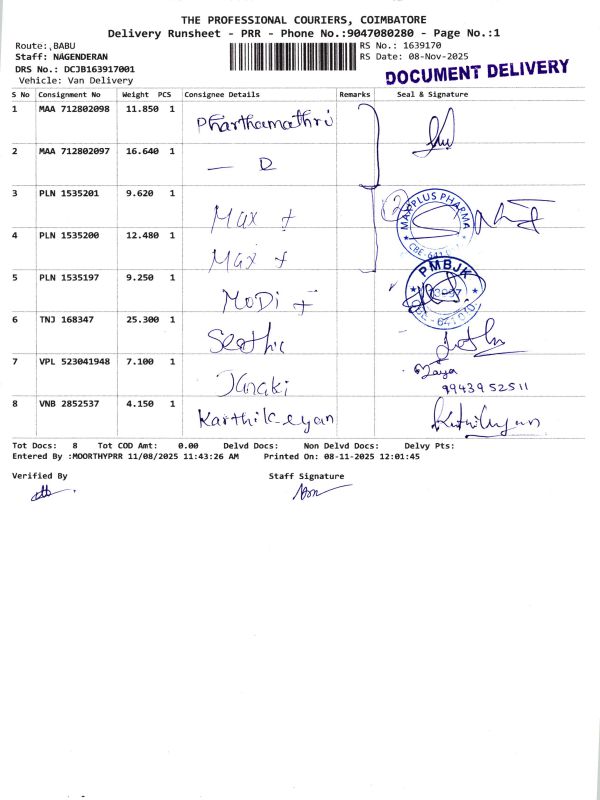 THE PROFESSIONAL COURIERS, COIMBATORE
Delivery Runsheet - PRR - Phone No.:9047080280 - Page No.:1
Route: BABU
RS No.: 1639170
Staff: NAGENDERAN
RS Date: 08-Nov-2025
DRS No.: DCJB163917001
Vehicle: Van Delivery
DOCUMENT DELIVERY
S No Consignment No Weight PCS Consignee Details Remarks Seal & Signature
1 MAA 712802098 11.850 1
2 MAA 712802097 16.640 1 — D
3 PLN 1535201 9.620 1 Max +
MAXPLUS PHARMA
4 PLN 1535200 12.480 1 Max +
PMBJK
5 PLN 1535197 9.250 1 MoDi +
6 TNJ 168347 25.300 1
7 VPL 523041948 7.100 1 Janaki
9943952511
8 VNB 2852537 4.150 1 Karthikeyan
Tot Docs: 8 Tot COD Amt: 0.00 Delvd Docs: Non Delvd Docs: Delvy Pts:
Entered By :MOORTHYPRR 11/08/2025 11:43:26 AM Printed On: 08-11-2025 12:01:45
Verified By Staff Signature